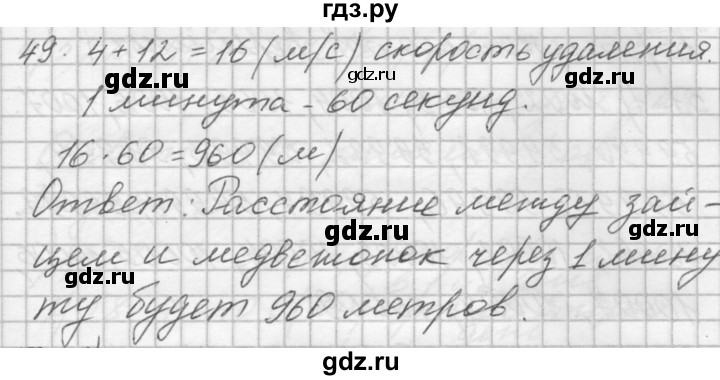 гдз.ру
49. 4+12=16(м/с) скорость удаления.
gdz.ru gdz.ru
1 минута - 60 секунд.
16·60=960(м)
gdz.ru
Ответ: Расстояние между зай-
gdz.ru
цем и медвежонок через 1 мину
gdz.ru gdz.ru
ту будет 960 метров.
gdz.ru